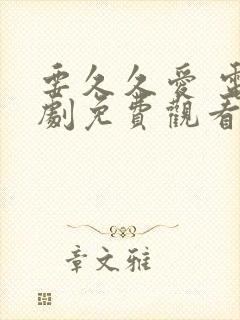 要久久愛 電
劇免費觀看
章文雅